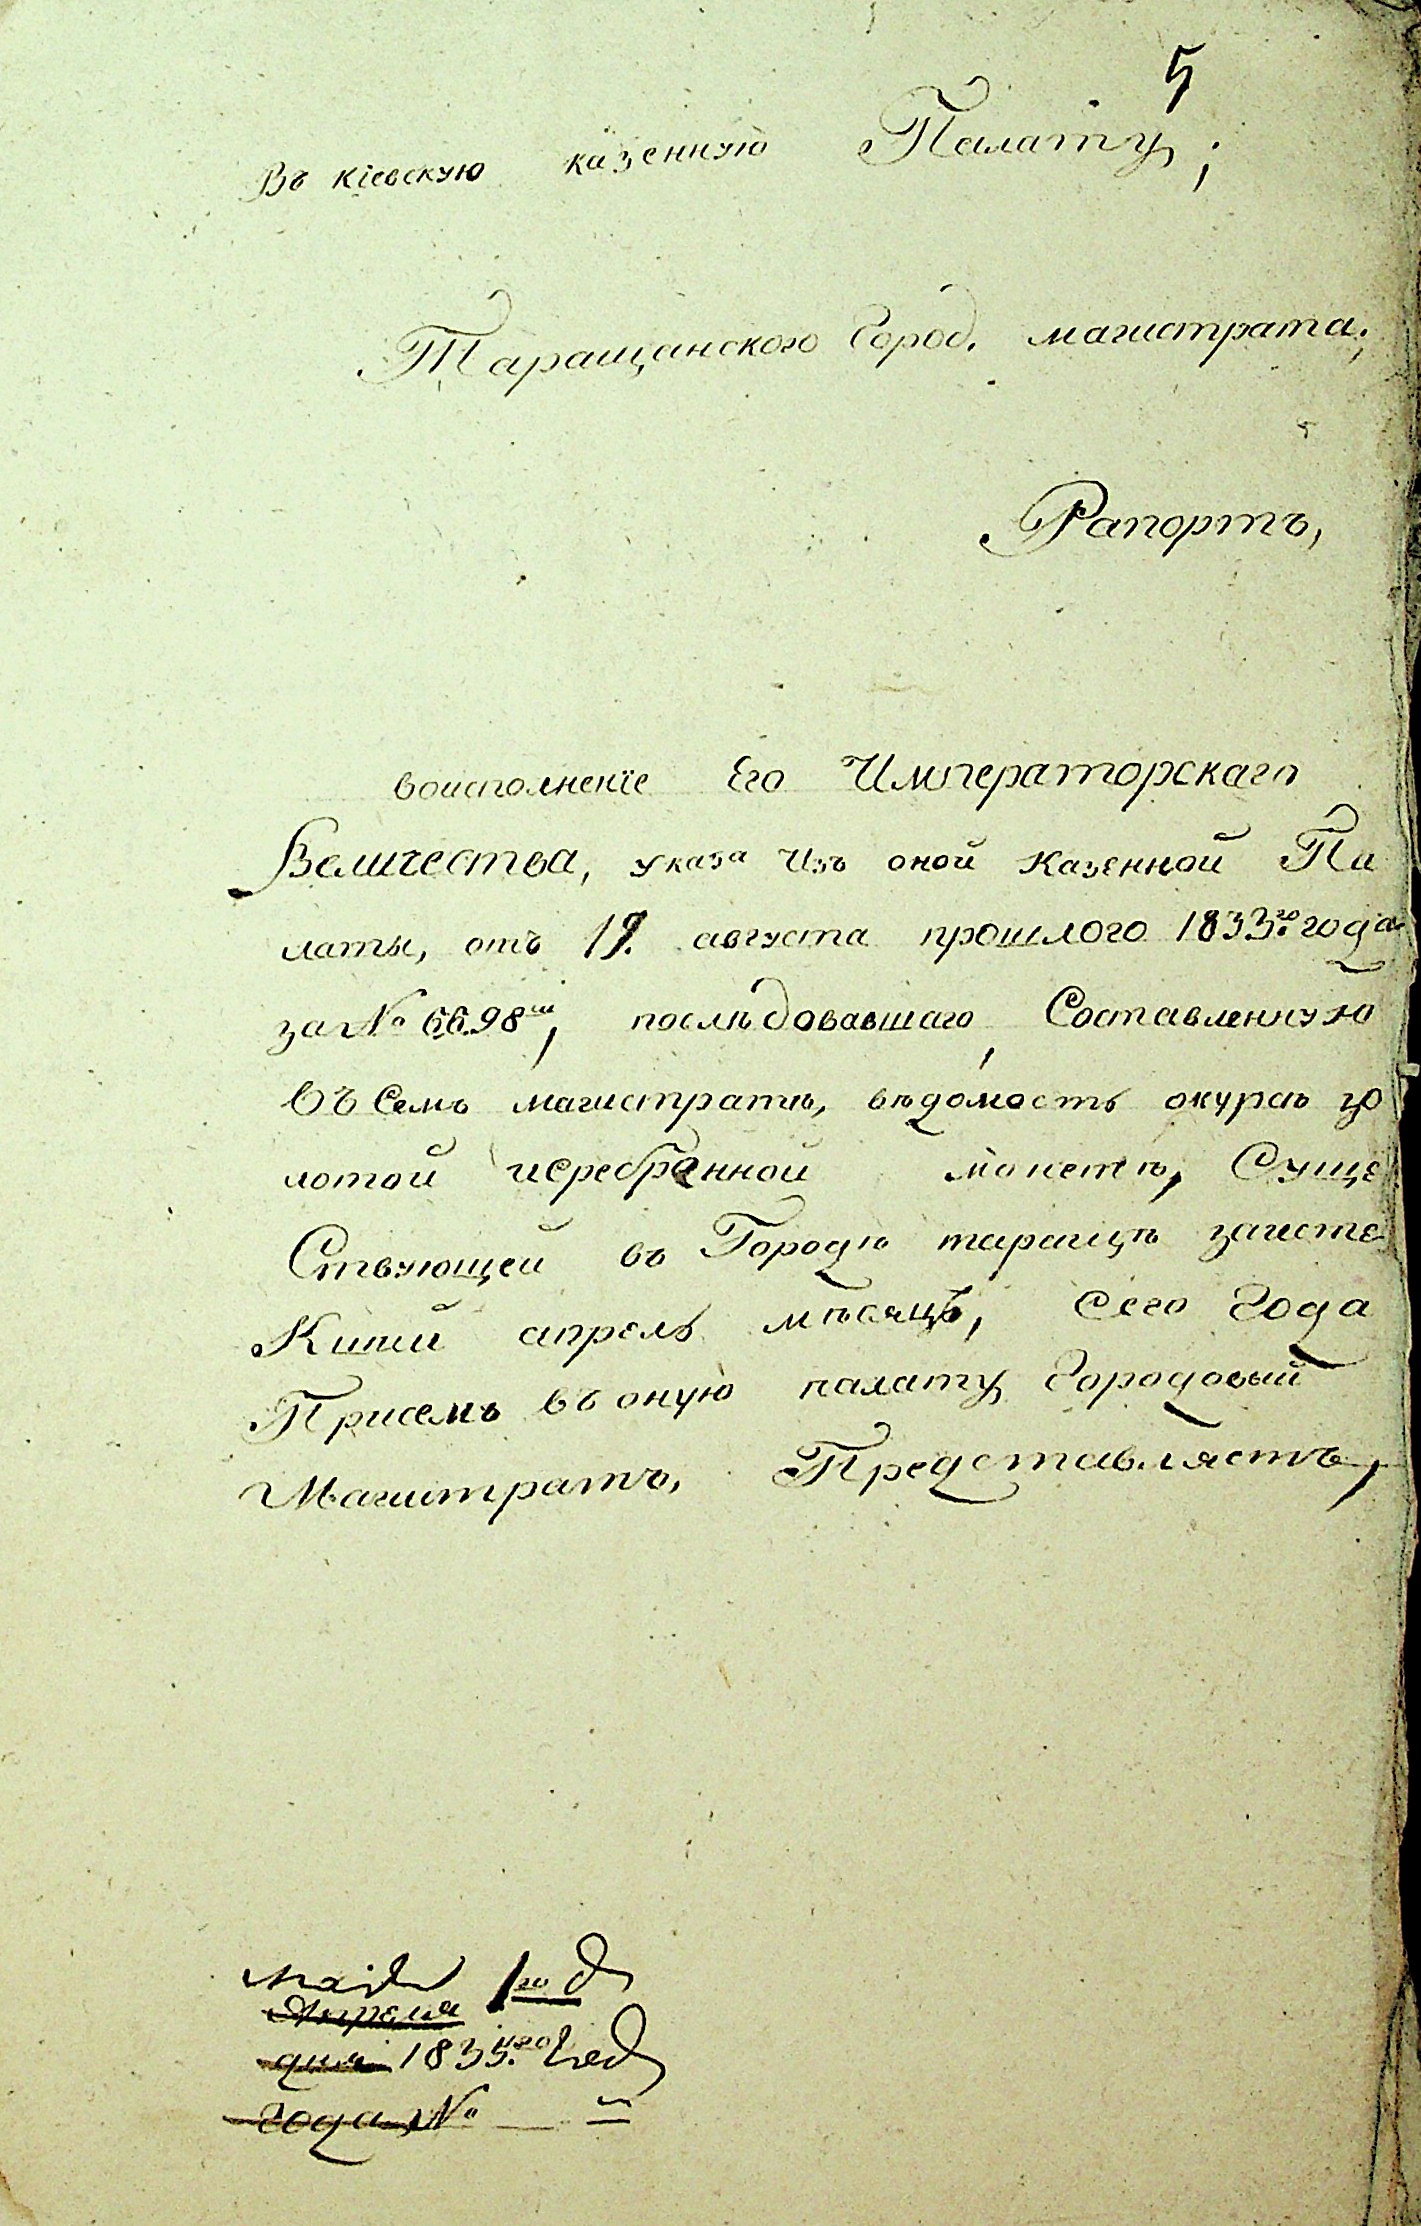 5
Въ кіевскую казенную Палату;
Таращанского Город. магистрата;
Рапортъ,
воисполненіе Его Императорскаго
Величества, указа Изъ оной казенной Па
латы, отъ 19. августа прошлого 1833го года
за № 6698м, послѣдовавшаго, Составленную
въ Семъ магистратѣ, вѣдомость окурсѣ зо
лотой исеребранной монетѣ, Суще
Ствующей въ Городѣ таращѣ заисте
Кшій апрель мѣсяцъ, сего Года
Присемъ въ оную палату Городовый
Магистратъ, Представляетъ,
мая 1го д
Апреля
дня 1835.го Год
года №